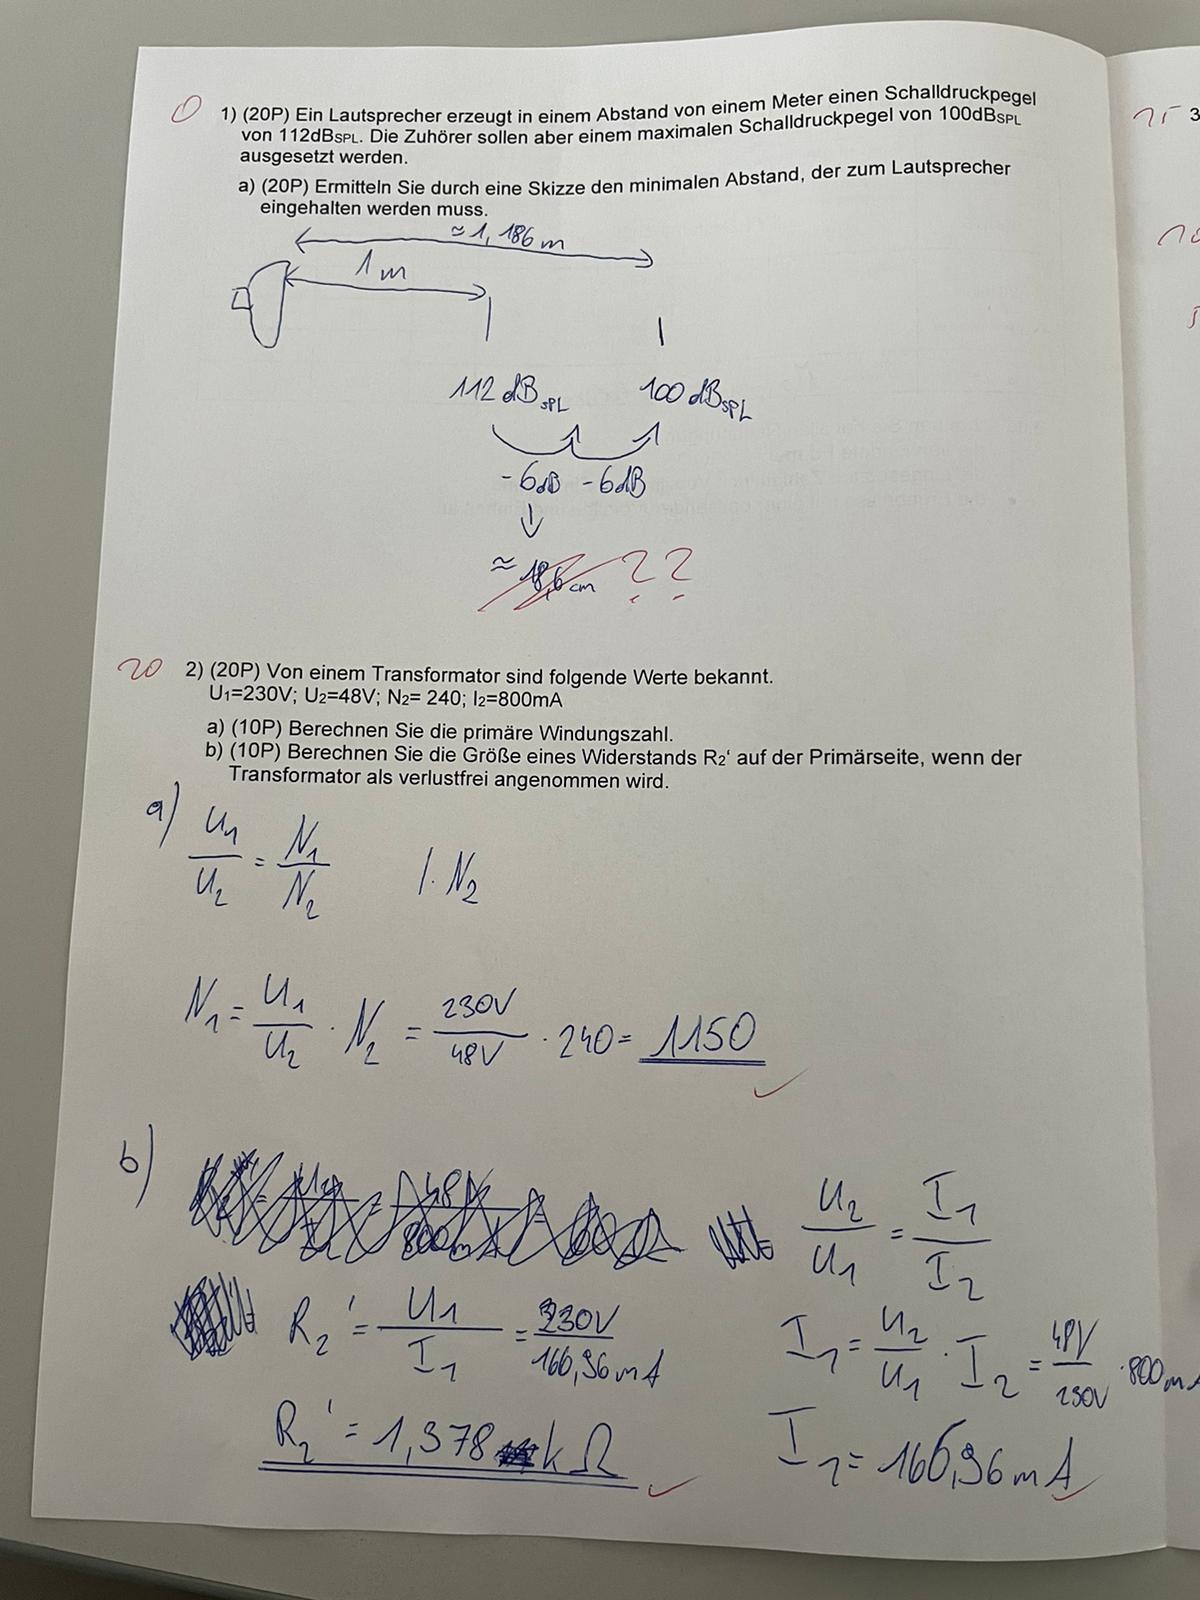 0 1) (20P) Ein Lautsprecher erzeugt in einem Abstand von einem Meter einen Schalldruckpegel
von 112dBSPL. Die Zuhörer sollen aber einem maximalen Schalldruckpegel von 100dBSPL
ausgesetzt werden.
a) (20P) Ermitteln Sie durch eine Skizze den minimalen Abstand, der zum Lautsprecher
eingehalten werden muss.
≈1,186m
1m
112 dBSPL 100 dBSPL
-6dB -6dB
≈ 18,6 cm ??
20 2) (20P) Von einem Transformator sind folgende Werte bekannt.
U1=230V; U2=48V; N2= 240; I2=800mA
a) (10P) Berechnen Sie die primäre Windungszahl.
b) (10P) Berechnen Sie die Größe eines Widerstands R2' auf der Primärseite, wenn der
Transformator als verlustfrei angenommen wird.
a) U1/U2 = N1/N2 |·N2
N1 = U1/U2 · N2 = 230V/48V · 240 = 1150
b)
U2/U1 = I1/I2
R2' = U1/I1 = 230V/166,96mA
I1 = U2/U1 · I2 = 48V/230V · 800mA
R2' = 1,378 kΩ
I1 = 166,96mA
15 3